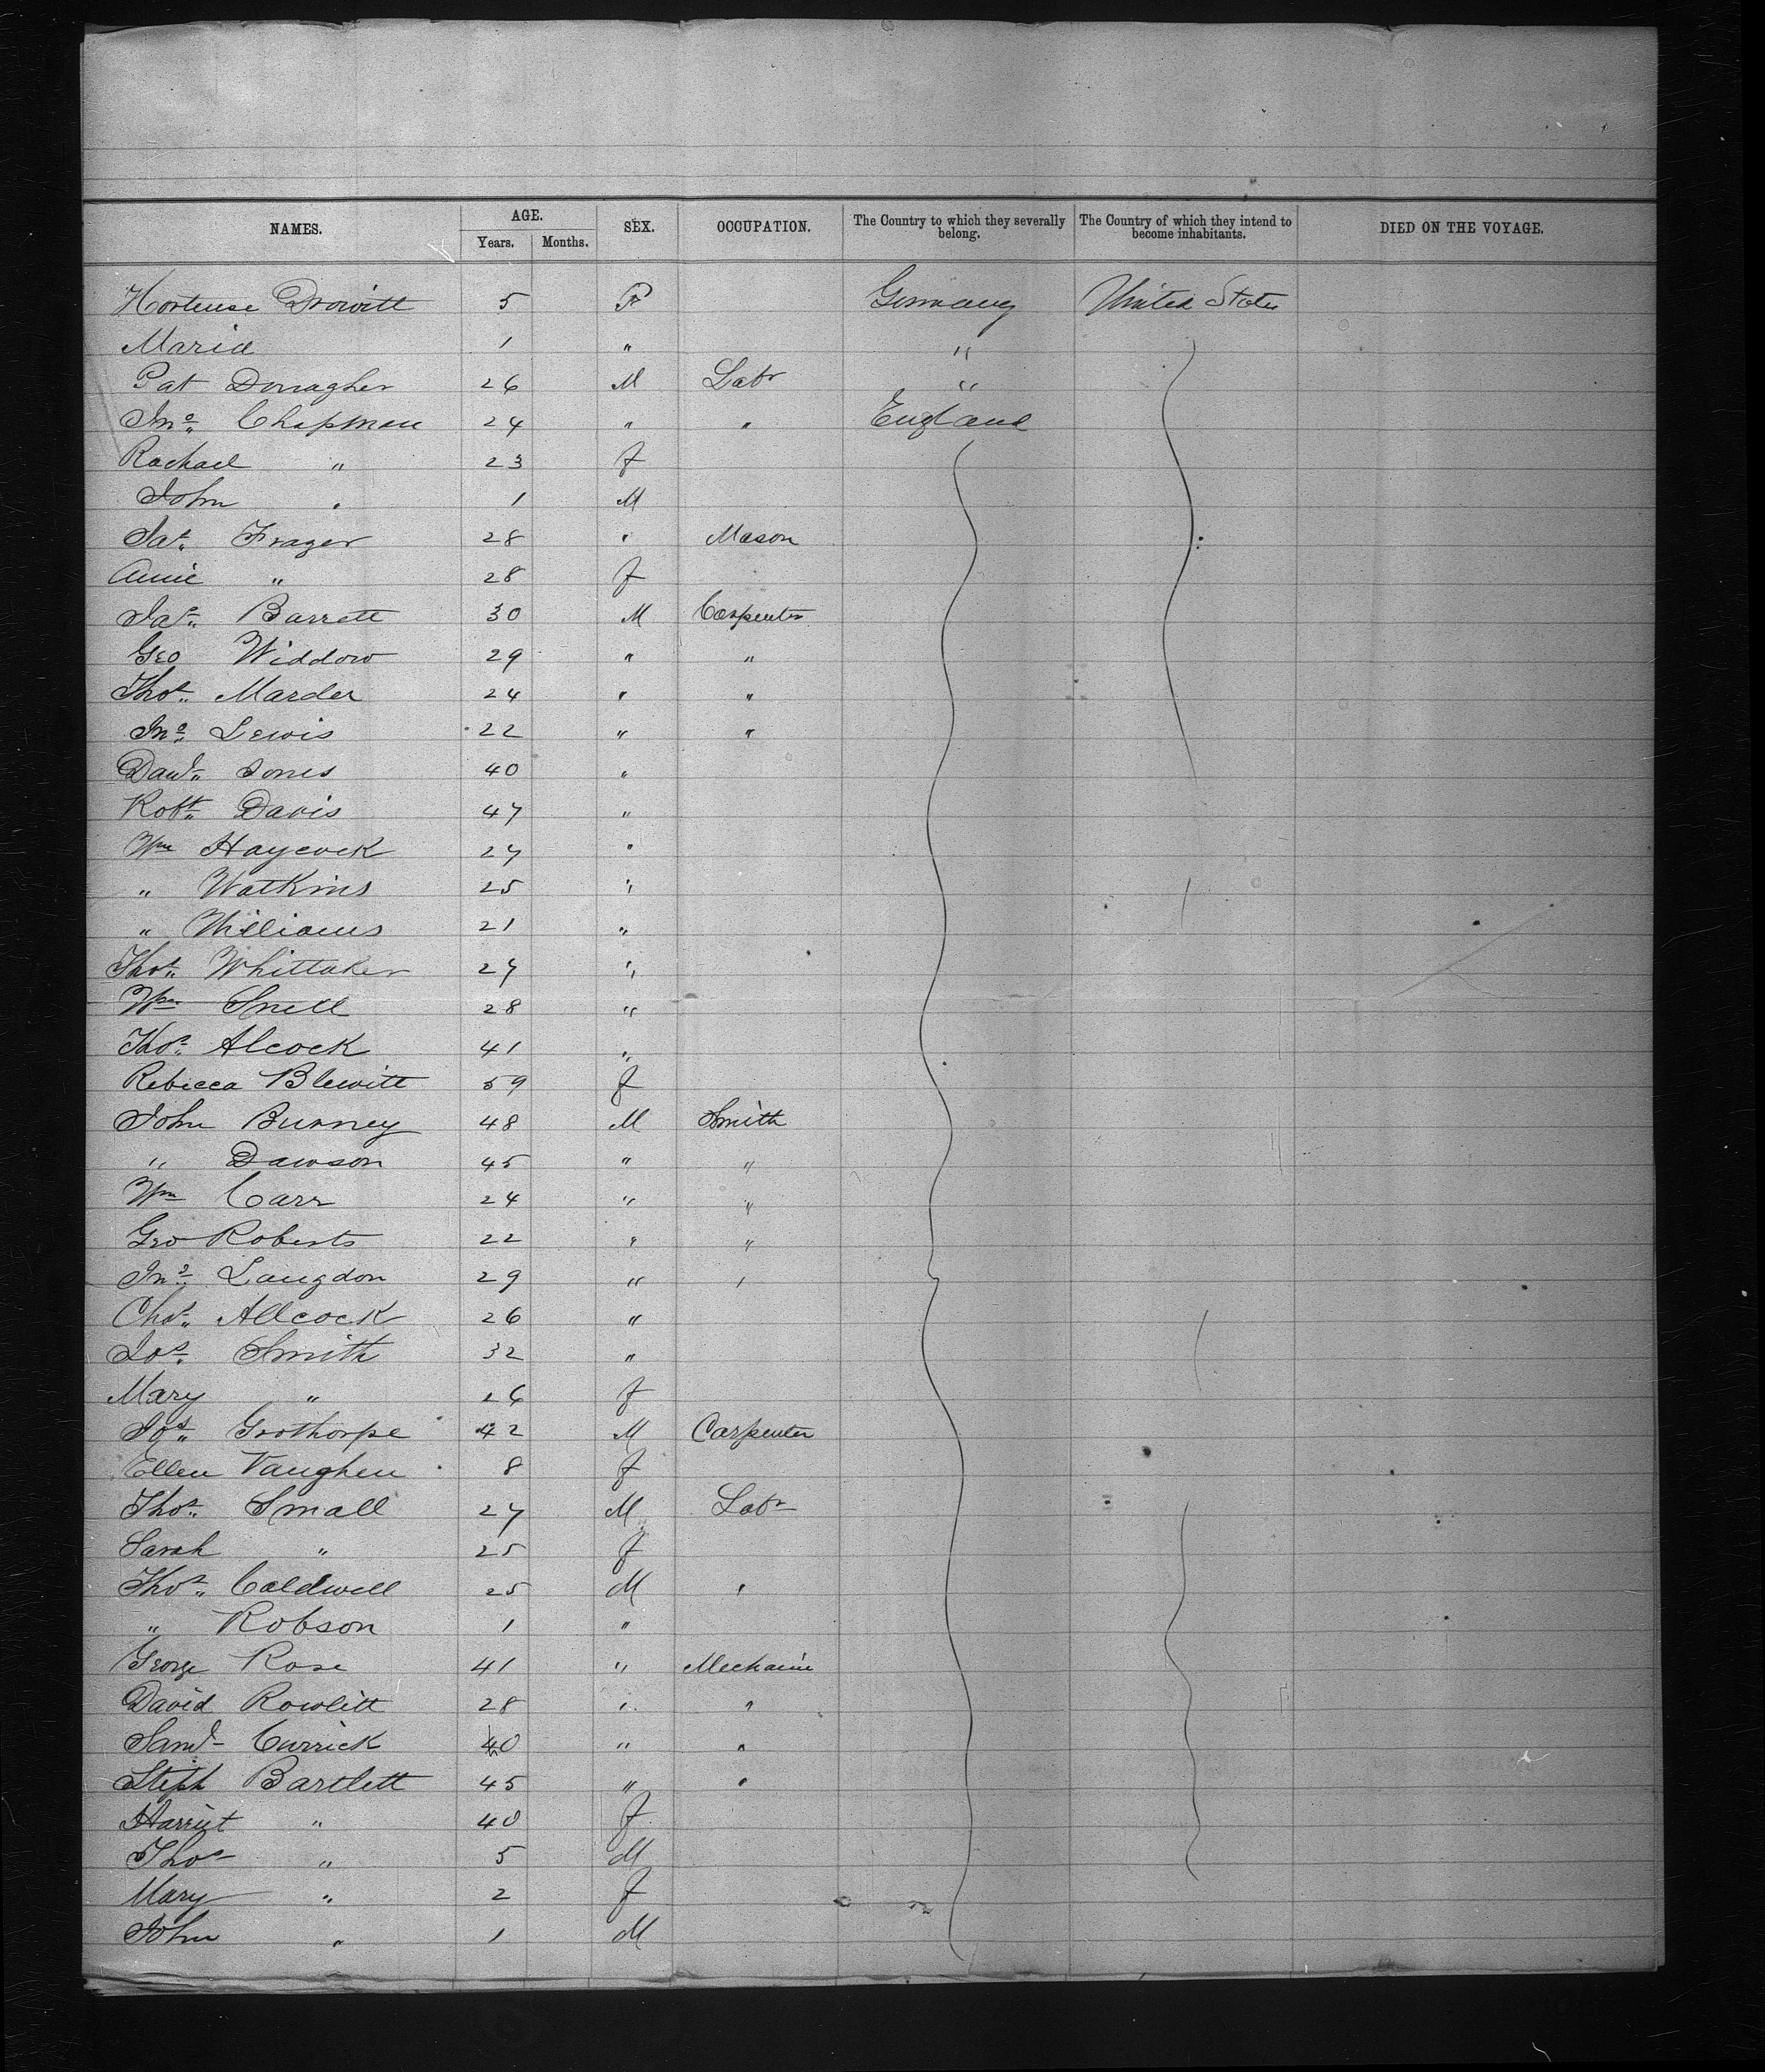 NAMES. AGE. Years. Months. SEX. OCCUPATION. The Country to which they severally belong. The Country of which they intend to become inhabitants. DIED ON THE VOYAGE.
Hortense Drowitt 5 F Germany United States
Maria 1 " "
Pat Donagher 26 M Labr "
Jno. Chapman 24 " " England
Rachael " 23 f
John " 1 M
Jas. Frazer 28 " Mason
Annie " 28 f
Jas. Barrett 30 M Carpenter
Geo Widdow 29 " "
Thos. Marder 24 " "
Jno. Lewis 22 " "
Danl. Jones 40 "
Robt. Davis 47 "
Wm Haycock 27 "
" Watkins 25 "
" Williams 21 "
Thos. Whittaker 27 "
Wm Snell 28 "
Thos. Alcock 41 "
Rebicca Blewitt 59 f
John Burney 48 M Smith
" Dawson 45 " "
Wm Carr 24 " "
Geo Roberts 22 " "
Jno. Langdon 29 " "
Chas. Allcock 26 "
Jos. Smith 32 "
Mary " 26 f
Jos. Grothorpe 42 M Carpenter
Ellen Vaughen 8 f
Thos. Small 27 M Labr
Sarah " 25 f
Thos. Caldwell 25 M "
" Robson 1 "
George Rose 41 " Mechanic
David Rowlitt 28 " "
Saml Currick 40 " "
Steph Bartlett 45 " "
Harriet " 40 f
Thos " 5 M
Mary " 2 f
John " 1 M